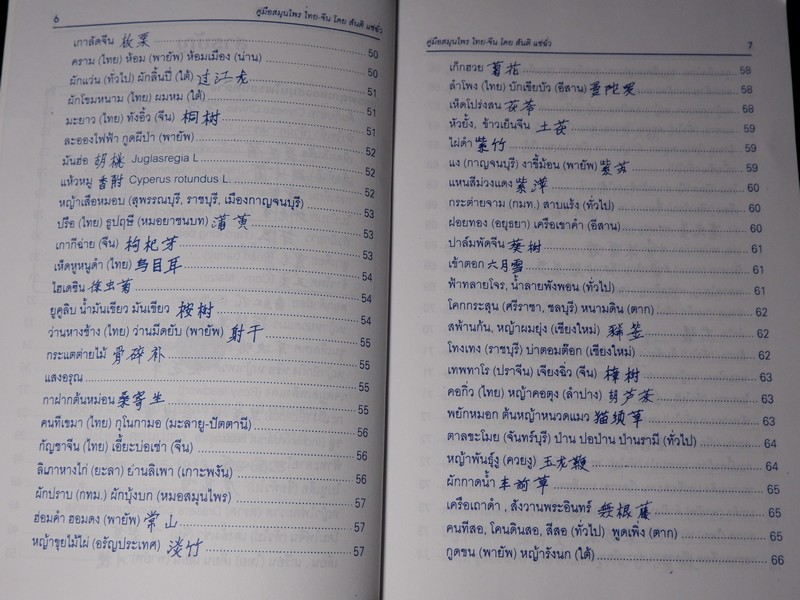 6 คู่มือสมุนไพร ไทย-จีน โดย สันติ แซ่ฉั่ว
เกาลัดจีน 板栗 50
คราม (ไทย) ห้อม (พายัพ) ห้อมเมือง (น่าน) 50
ผักแว่น (ทั่วไป) ผักลิ้นปี่ (ใต้) 过江龙 51
ผักโขมหนาม (ไทย) ผมหม (ใต้) 51
มะยาว (ไทย) ทังอิ้ว (จีน) 桐树 51
ละอองไฟฟ้า กูดผีป่า (พายัพ) 52
มันฮ่อ 胡桃 Juglasregia L. 52
แห้วหมู 香附 Cyperus rotundus L. 52
หญ้าเสือหมอบ (สุพรรณบุรี, ราชบุรี, เมืองกาญจนบุรี) 53
ปรือ (ไทย) ธูปฤษี (หมอยาชนบท) 蒲黄 53
เกากีฉ่าย (จีน) 枸杞芽 53
เห็ดหูหนูดำ (ไทย) 54
ไฮเดซิน 54
ยูคลิบ น้ำมันเขียว มันเขียว 桉树 54
ว่านหางช้าง (ไทย) ว่านมีดยับ (พายัพ) 射干 55
กระแตต่ายไม้ 骨碎补 55
แสงอรุณ 55
กาฝากต้นหม่อน 桑寄生 56
คนทีเขมา (ไทย) กุโนกามอ (มะลายู-ปัตตานี) 56
กัญชาจีน (ไทย) เอี๊ยะบ่อเช่า (จีน) 56
ลิเภาหางไก่ (ยะลา) ย่านลิเพา (เกาะพงัน) 57
ผักปราบ (กทม.) ผักบุ้งบก (หมอสมุนไพร) 57
ฮ่อมคำ ฮอมดง (พายัพ) 常山 57
หญ้าขุยไม้ไผ่ (อรัญประเทศ) 淡竹 57
คู่มือสมุนไพร ไทย-จีน โดย สันติ แซ่ฉั่ว 7
เก๊กฮวย 菊花 58
ลำโพง (ไทย) บักเขียบบ้า (อีสาน) 58
เห็ดโปร่งสน 茯苓 58
หัวยั้ง, ข้าวเย็นจีน 土茯 59
ไผ่ดำ 紫竹 59
แง (กาญจนบุรี) งาขี้ม้อน (พายัพ) 紫苏 59
แหนสีม่วงแดง 紫萍 59
กระต่ายจาม (กมท.) สาบแร้ง (ทั่วไป) 60
ฝอยทอง (อยุธยา) เครือเขาคำ (อีสาน) 60
ปาล์มพัดจีน 葵树 61
เข้าตอก 六月雪 61
ฟ้าทลายโจร, น้ำลายพังพอน (ทั่วไป) 61
โคกกระสุน (ศรีราชา, ชลบุรี) หนามดิน (ตาก) 62
สพ้านก้น, หญ้าผมยุ่ง (เชียงใหม่) 62
โทงเทง (ราชบุรี) บ่าตอมต๊อก (เชียงใหม่) 62
เทพทาโร (ปราจีน) เจียงฉิ่ว (จีน) 樟树 63
คอกิ่ว (ไทย) หญ้าคอตุง (ลำปาง) 葫芦茶 63
พยัภหมอก ต้นหญ้าหนวดแมว 猫须草 63
ตาลขะโมย (จันทร์บุรี) ป่าน ปอป่าน ป่านรามี (ทั่วไป) 64
หญ้าพันธุ์งู (ควยงู) 玉龙鞭 64
ผักกาดน้ำ 车前草 65
เครือเถาดำ , สังวานพระอินทร์ 无根藤 65
คนทีสอ, โคนดินสอ, สีสอ (ทั่วไป) พูดเพิ่ง (ตาก) 65
กูดขน (พายัพ) หญ้ารังนก (ใต้) 66